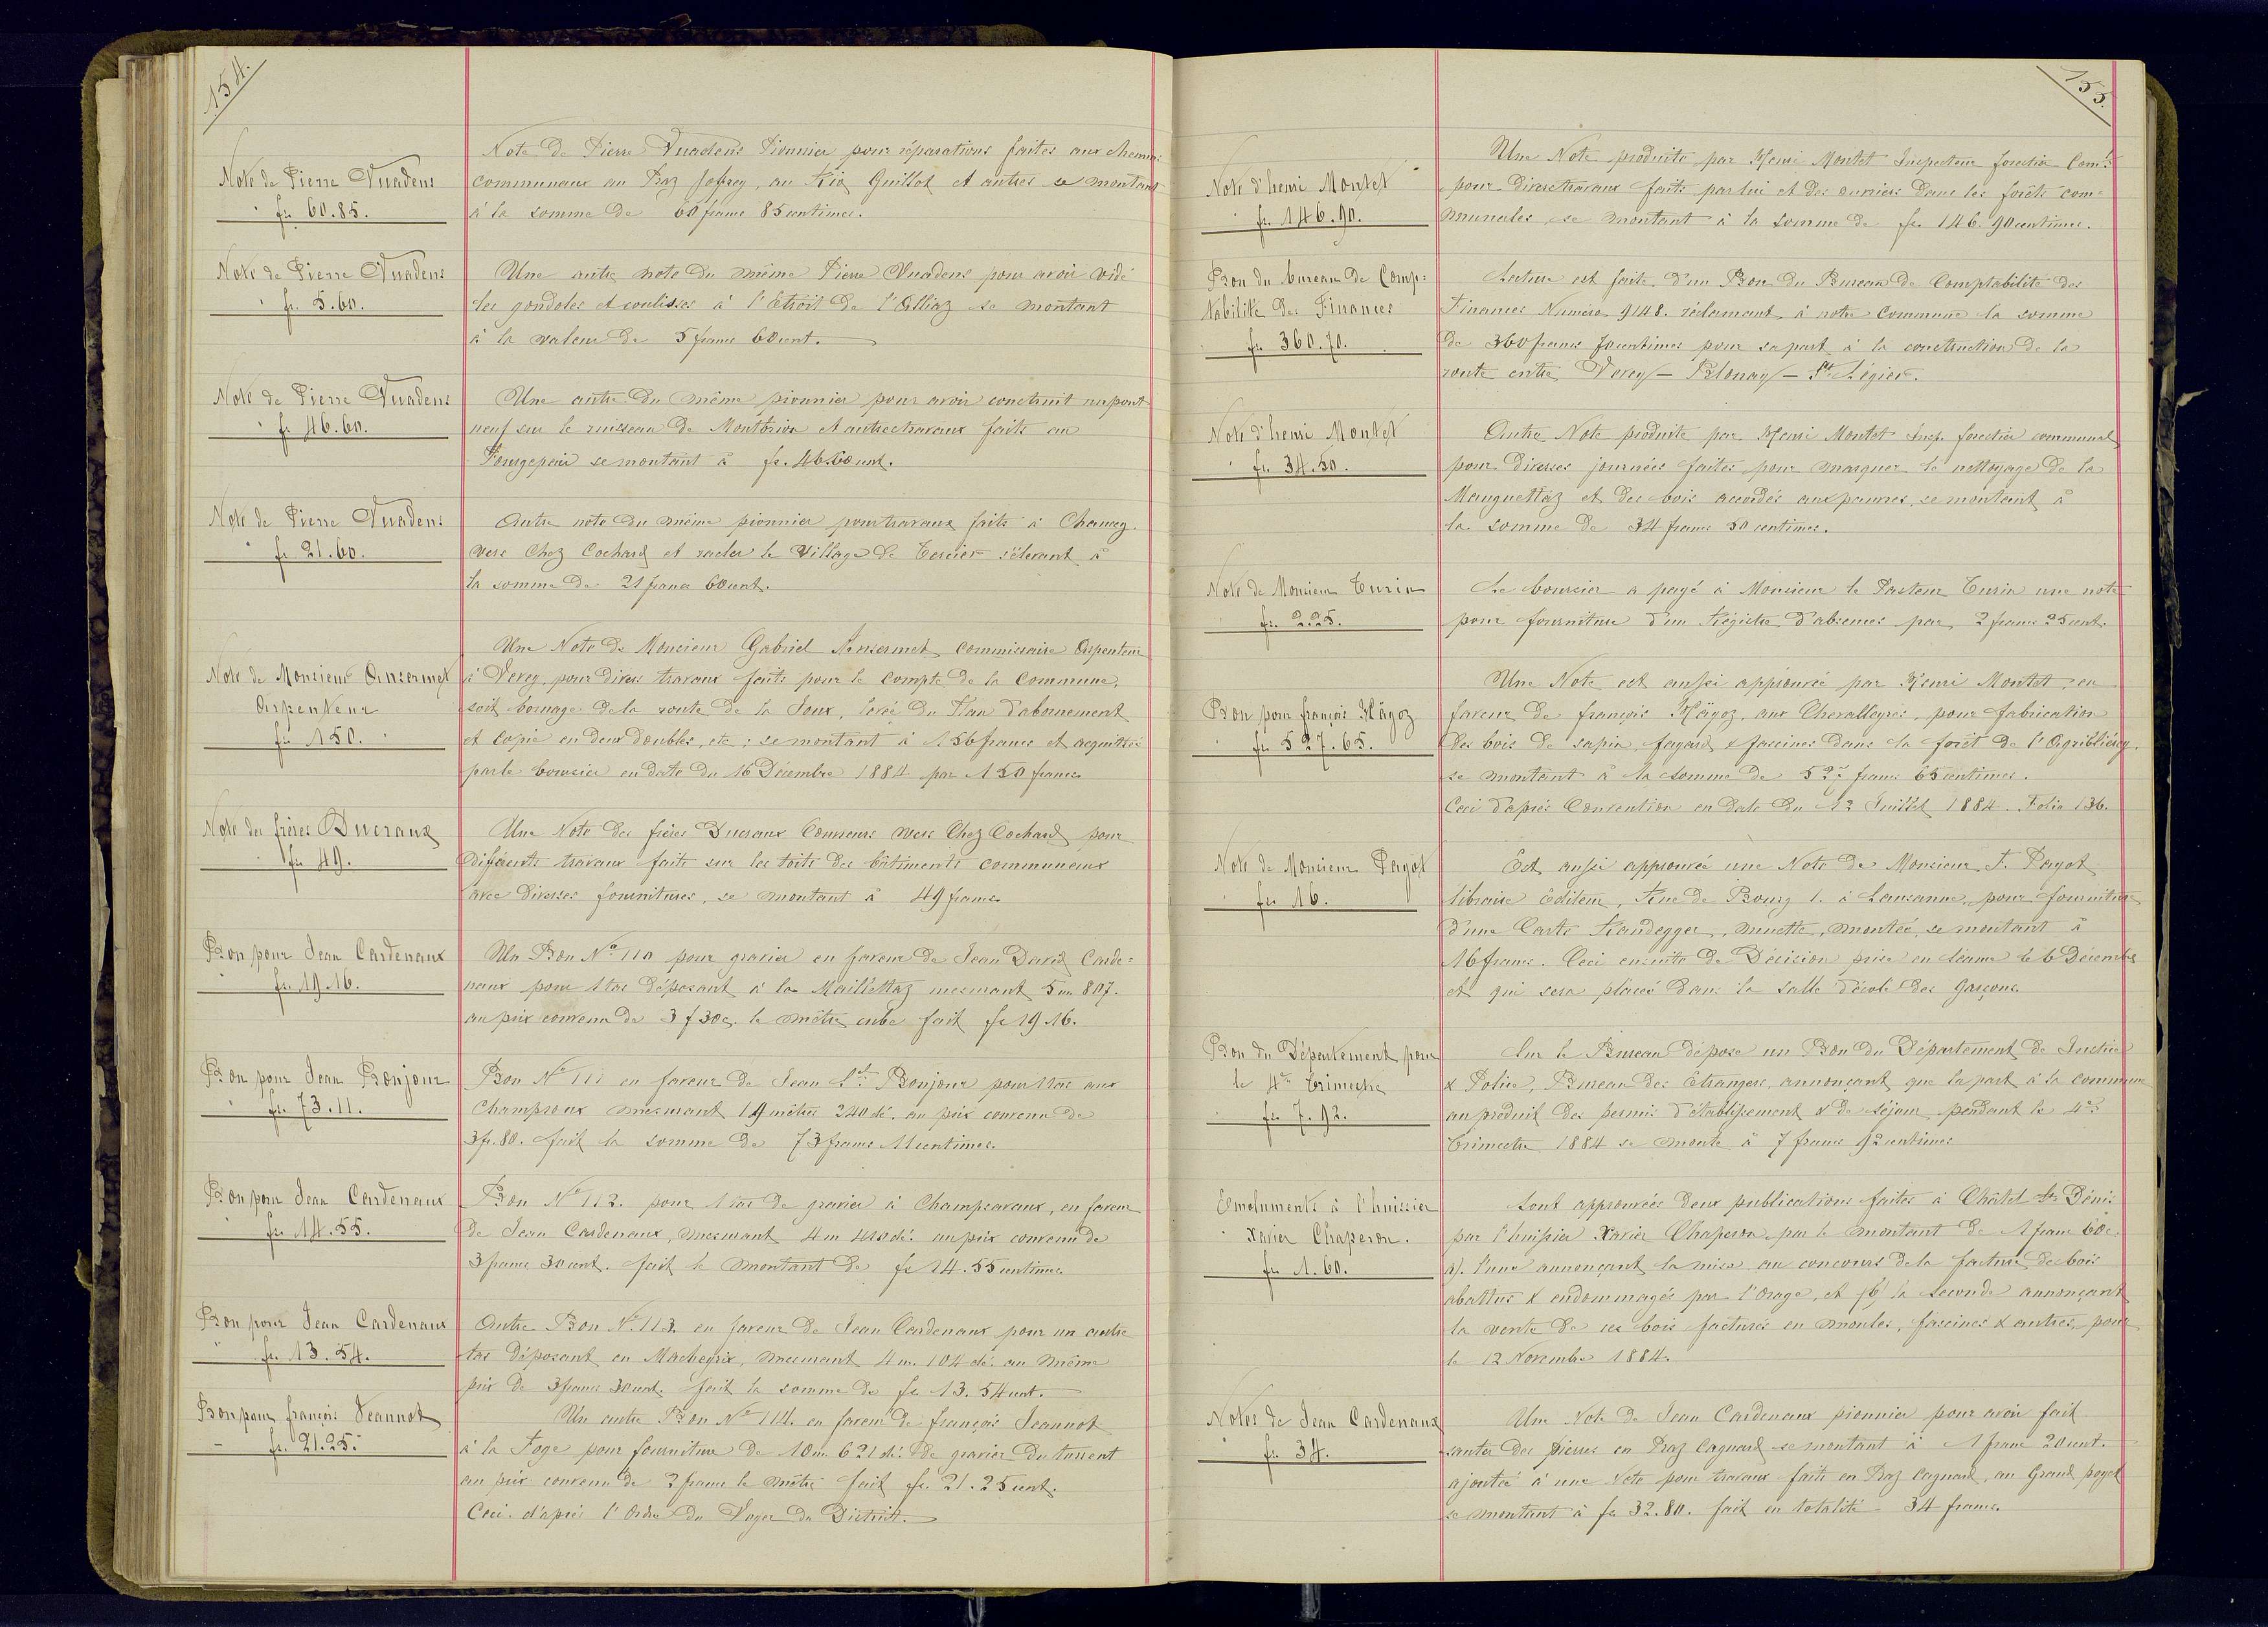 154.
Note de Pierre Vuadens
fr. 60.85.
Note de Pierre Vuadens Pionnier pour réparations faites aux chemins
communaux au Praz Joffrey, au Riog Guillot et autres se montant
à la somme de 60 francs 85 centimes.
Note de Pierre Vuadens
fr. 5.60.
Une autre note du même Pierre Vuadens pour avoir vidé
les gondoles et coulisses à l'Etroit de l'Alliaz se montant
à la valeur de 5 francs 60 cent.
Note de Pierre Vuadens
fr. 46.60.
Une autre du même pionnier pour avoir construit un pont
neuf sur le ruisseau de et autres travaux faits au
se montant à fr. 46.60 cent.
Note de Pierre Vuadens
fr. 21.60.
Autre note du même pionnier pour travaux faits à
vers Chez Cochard et racler le Village de Tercier s'élevant à
la somme de 21 francs 60 cent.
Note de Monsieur Ansermet
Arpenteur
fr. 150.
Une Note de Monsieur Gabriel Ansermet commissaire Arpenteur
à Vevey pour divers travaux faits pour le compte de la Commune,
soit bornage de la route de la Joux, levée du Plan d'abornement
et copie en deux doubles, etc; se montant à 156 francs et acquittée
par le boursier en date du 16 Décembre 1884 par 150 francs
Note des frères Ducraux
fr. 49.
Une Note des frères Ducraux Couvreurs vers Chez Cochard pour
différents travaux faits sur les toits des bâtiments communaux
avec diverses fournitures, se montant à 49 francs
Bon pour Jean Cardenaux
fr. 19.16.
Un Bon No 110 pour gravier en faveur de Jean David Carde=
naux pour 1 tas déposant à la Maillettaz mesurant 5 m 807.
au prix convenu de 3 f 30 c. le mètre cube fait fr 19.16.
Bon pour Jean Bonjour
fr. 73.11.
Bon No 111 en faveur de Jean Ls Bonjour pour 1 tas aux
mesurant 19 mètres 240 dé. au prix convenu de
3 fr. 80. fait la somme de 73 francs 11 centimes.
Bon pour Jean Cardenaux
fr. 14.55.
Bon No 112. pour 1 tas de gravier à Champsavaux, en faveur
de Jean Cardenaux, mesurant 4 m 410 dé. au prix convenu de
3 francs 30 cent. fait le montant de fr 14.55 centimes
Bon pour Jean Cardenaux
fr. 13.54.
Autre Bon No 113 en faveur de Jean Cardenaux pour un autre
tas déposant en mesurant 4 m. 104 dé. au même
prix de 3 francs 30 cent. fait la somme de fr 13.54 cent.
Bon pour françois Jeannot
fr. 21.25.
Un autre Bon No 114. en faveur de françois Jeannot
à la Foge pour fourniture de 10 m. 621 dé. de gravier du torrent
au prix convenu de 2 francs le mètre fait fr. 21.25 cent.
Ceci d'après l'Ordre du Voyer du District.
155.
Note d'henri Montet
fr. 146.90.
Une Note produite par Henri Montet Inspecteur forestier Comal
pour divers travaux faits par lui et des ouvriers dans les forêts com=
munales, se montant à la somme de fr. 146.90 centimes.
Bon du bureau de Comp=
tabilité des Finances
fr. 360.70.
Lecture est faite d'un Bon du Bureau de Comptabilité des
Finances Numéro 9148. réclamant à notre Commune la somme
de 360 francs 70 centimes pour sa part à la construction de la
route entre Vevey – Blonay – St. Légier.
Note d'henri Montet
fr. 34.50.
Autre Note produite par Henri Montet Insp. forestier communal
pour diverses journées faites pour marquer le nettoyage de la
Mauguettaz et des bois accordés aux pauvres, se montant à
la somme de 34 francs 50 centimes.
Note de Monsieur Turin
fr. 2.25.
Le boursier a payé à Monsieur le Pasteur Turin une note
pour fourniture d'un Régistre d'absences par 2 francs 25 cent.
Bon pour françois Hägoz
fr. 527.65.
Une Note est aussi approuvée par Henri Montet, en
faveur de françois Hägoz, aux Chevalleyres, pour fabrication
des bois de sapin, fayard & fascines dans la forêt de
se montant à la somme de 527 francs 65 centimes.
Ceci d'après Convention en date du Juillet 1884. Folio 136.
Note de Monsieur Payot
fr. 16.
Est aussi approuvée une Note de Monsieur F. Payot
libraire éditeur, Rue de Bourg 1. à Lausanne, pour fourniture
d'une Carte Randegger, muette, montée, se montant à
16 francs. Ceci ensuite de Décision prise en séance le 6 Décembre
et qui sera placée dans la salle d'école des garçons.
Bon du Département pour
le 4me trimestre
fr. 7.92.
Sur le Bureau dépose un Bon du Département de Justice
& Police, Bureau des Etrangers, annonçant que la part à la commune
au produit des permis d'établissement & de séjour pendant le 4me
trimestre 1884 se monte à 7 francs 92 centimes
Emoluments à l'huissier
Xavier Chaperon.
fr. 1.60.
Sont approuvées deux publications faites à Châtel St Dénis
par l'huissier Xavier Chaperon par le montant de 1 franc 60 c.
a). l'une annonçant la mise au concours de la facture de bois
abattus & endommagés par l'Orage, et (b) la seconde annonçant
la vente de ces bois facturés en moules, fascines & autres, pour
le 12 Novembre 1884.
Notes de Jean Cardenaux
fr. 34.
Une Note de Jean Cardenaux pionnier pour avoir fait
sauter des pierres en Praz Cagnard se montant à 1 franc 20 cent.
ajoutée à une Note pour travaux faits en Praz Cagnard, au Grand poyet
se montant à fr 32.80. fait en totalité 34 francs.